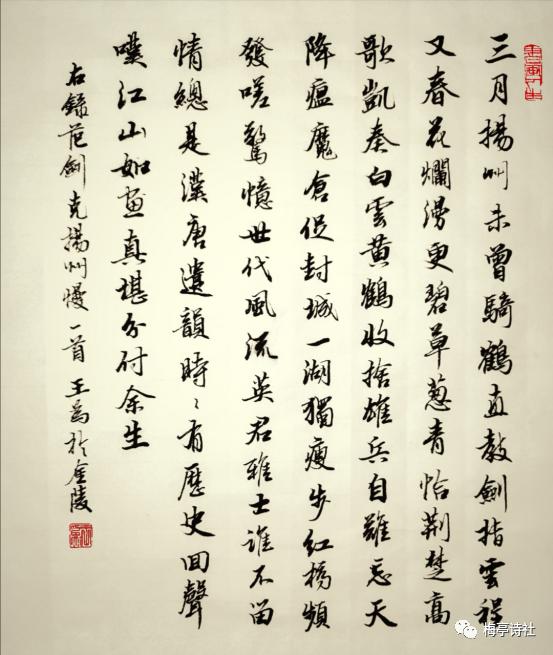 三月揚州未曾騎鶴直教劍指雲程
又春花爛漫更碧草蔥青恰荊楚高
歌凱奏白雲黃鶴收捨雄兵自難忘天
降瘟魔倉促封城一湖獨瘦步紅橋頻
發嗟驚憶世代風流英君雅士誰不留
情總是漢唐遺韻時〻有歷史回聲
嘆江山如畫真堪分付余生
右錄范劍克揚州慢一首 王爲於金陵
梅亭诗社